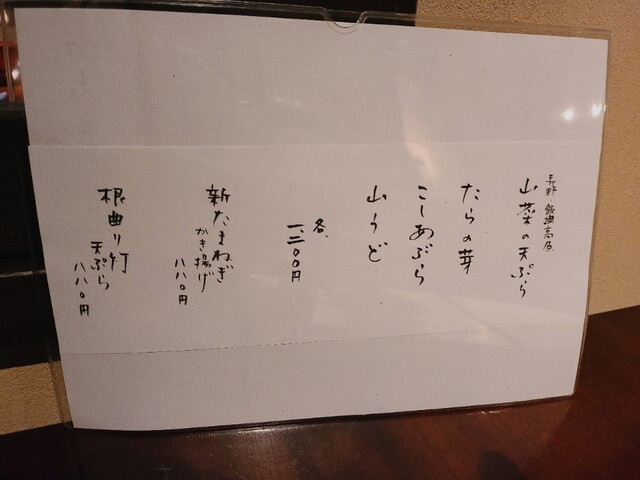 長野 飯綱高原
山菜の天ぷら
たらの芽
こしあぶら
山うど
各、
一、三〇〇円
新たまねぎ
かき揚げ
八八〇円
根曲り竹
天ぷら
八八〇円